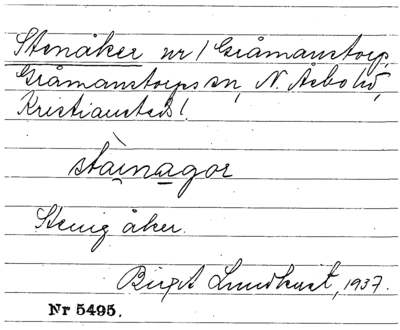 Stenåker nr 1 Gråmanstorp,
Gråmanstorps sn, N. Åsbo hd,
Kristianstads l.
stàinagor
Stenig åker.
Birgit Lundkvist, 1937.
Nr 5495.